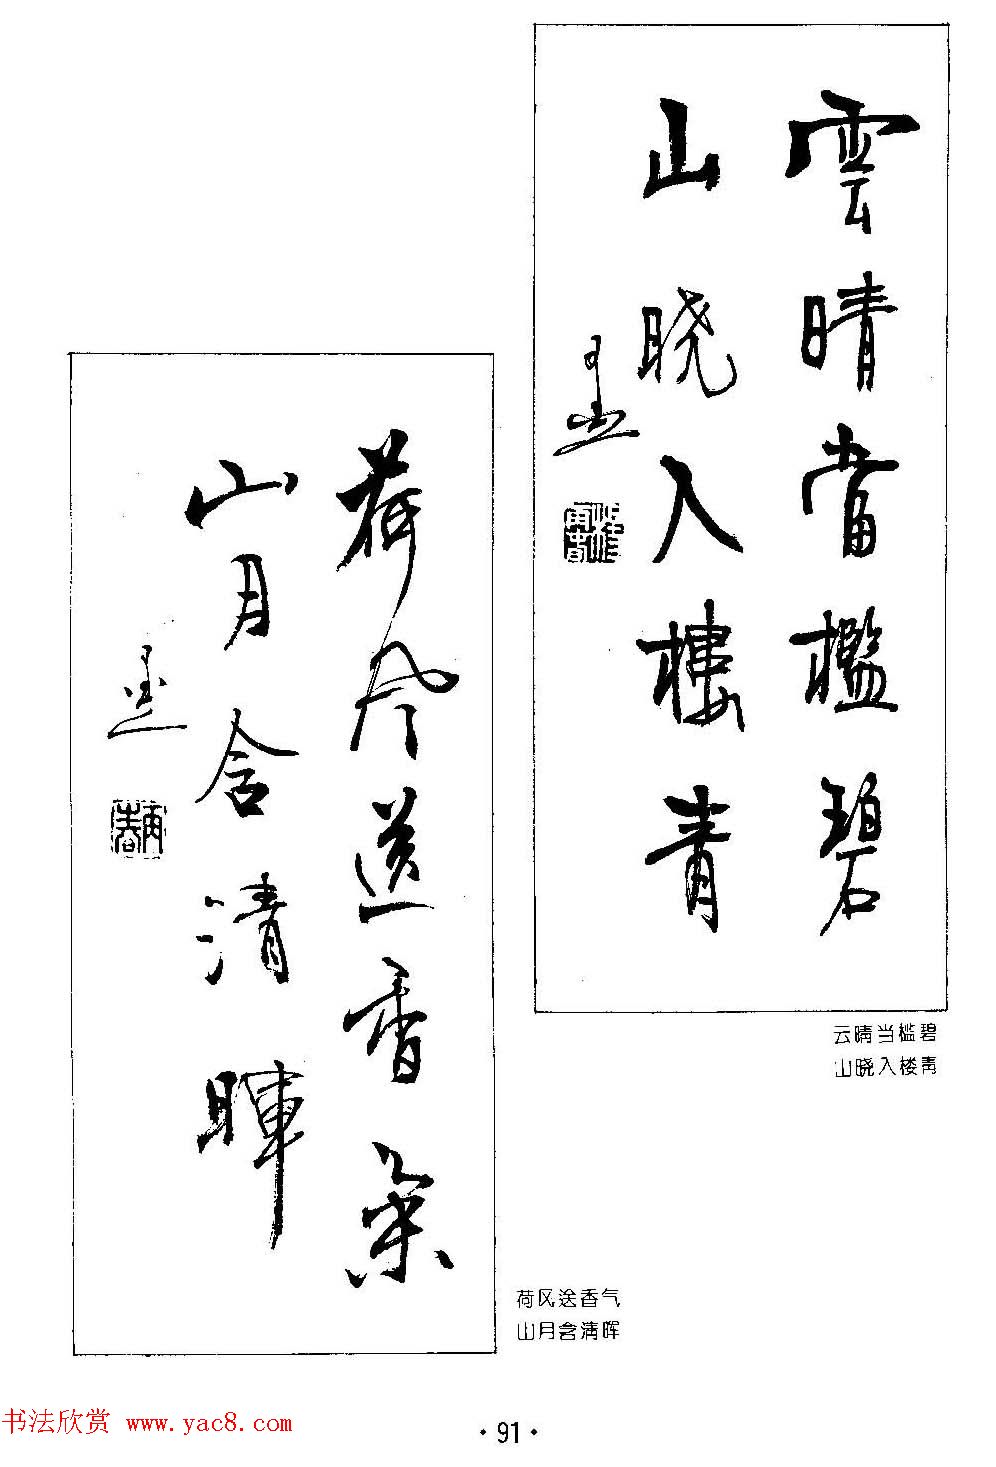 雲晴當檻碧
山晓入樓青
云晴当槛碧
山晓入楼青
荷风送香气
山月含清暉
荷风送香气
山月含清晖
书法欣赏 www.yac8.com
·91·